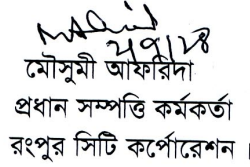 মৌসুমী আফরিদা
প্রধান সম্পত্তি কর্মকর্তা
রংপুর সিটি কর্পোরেশন